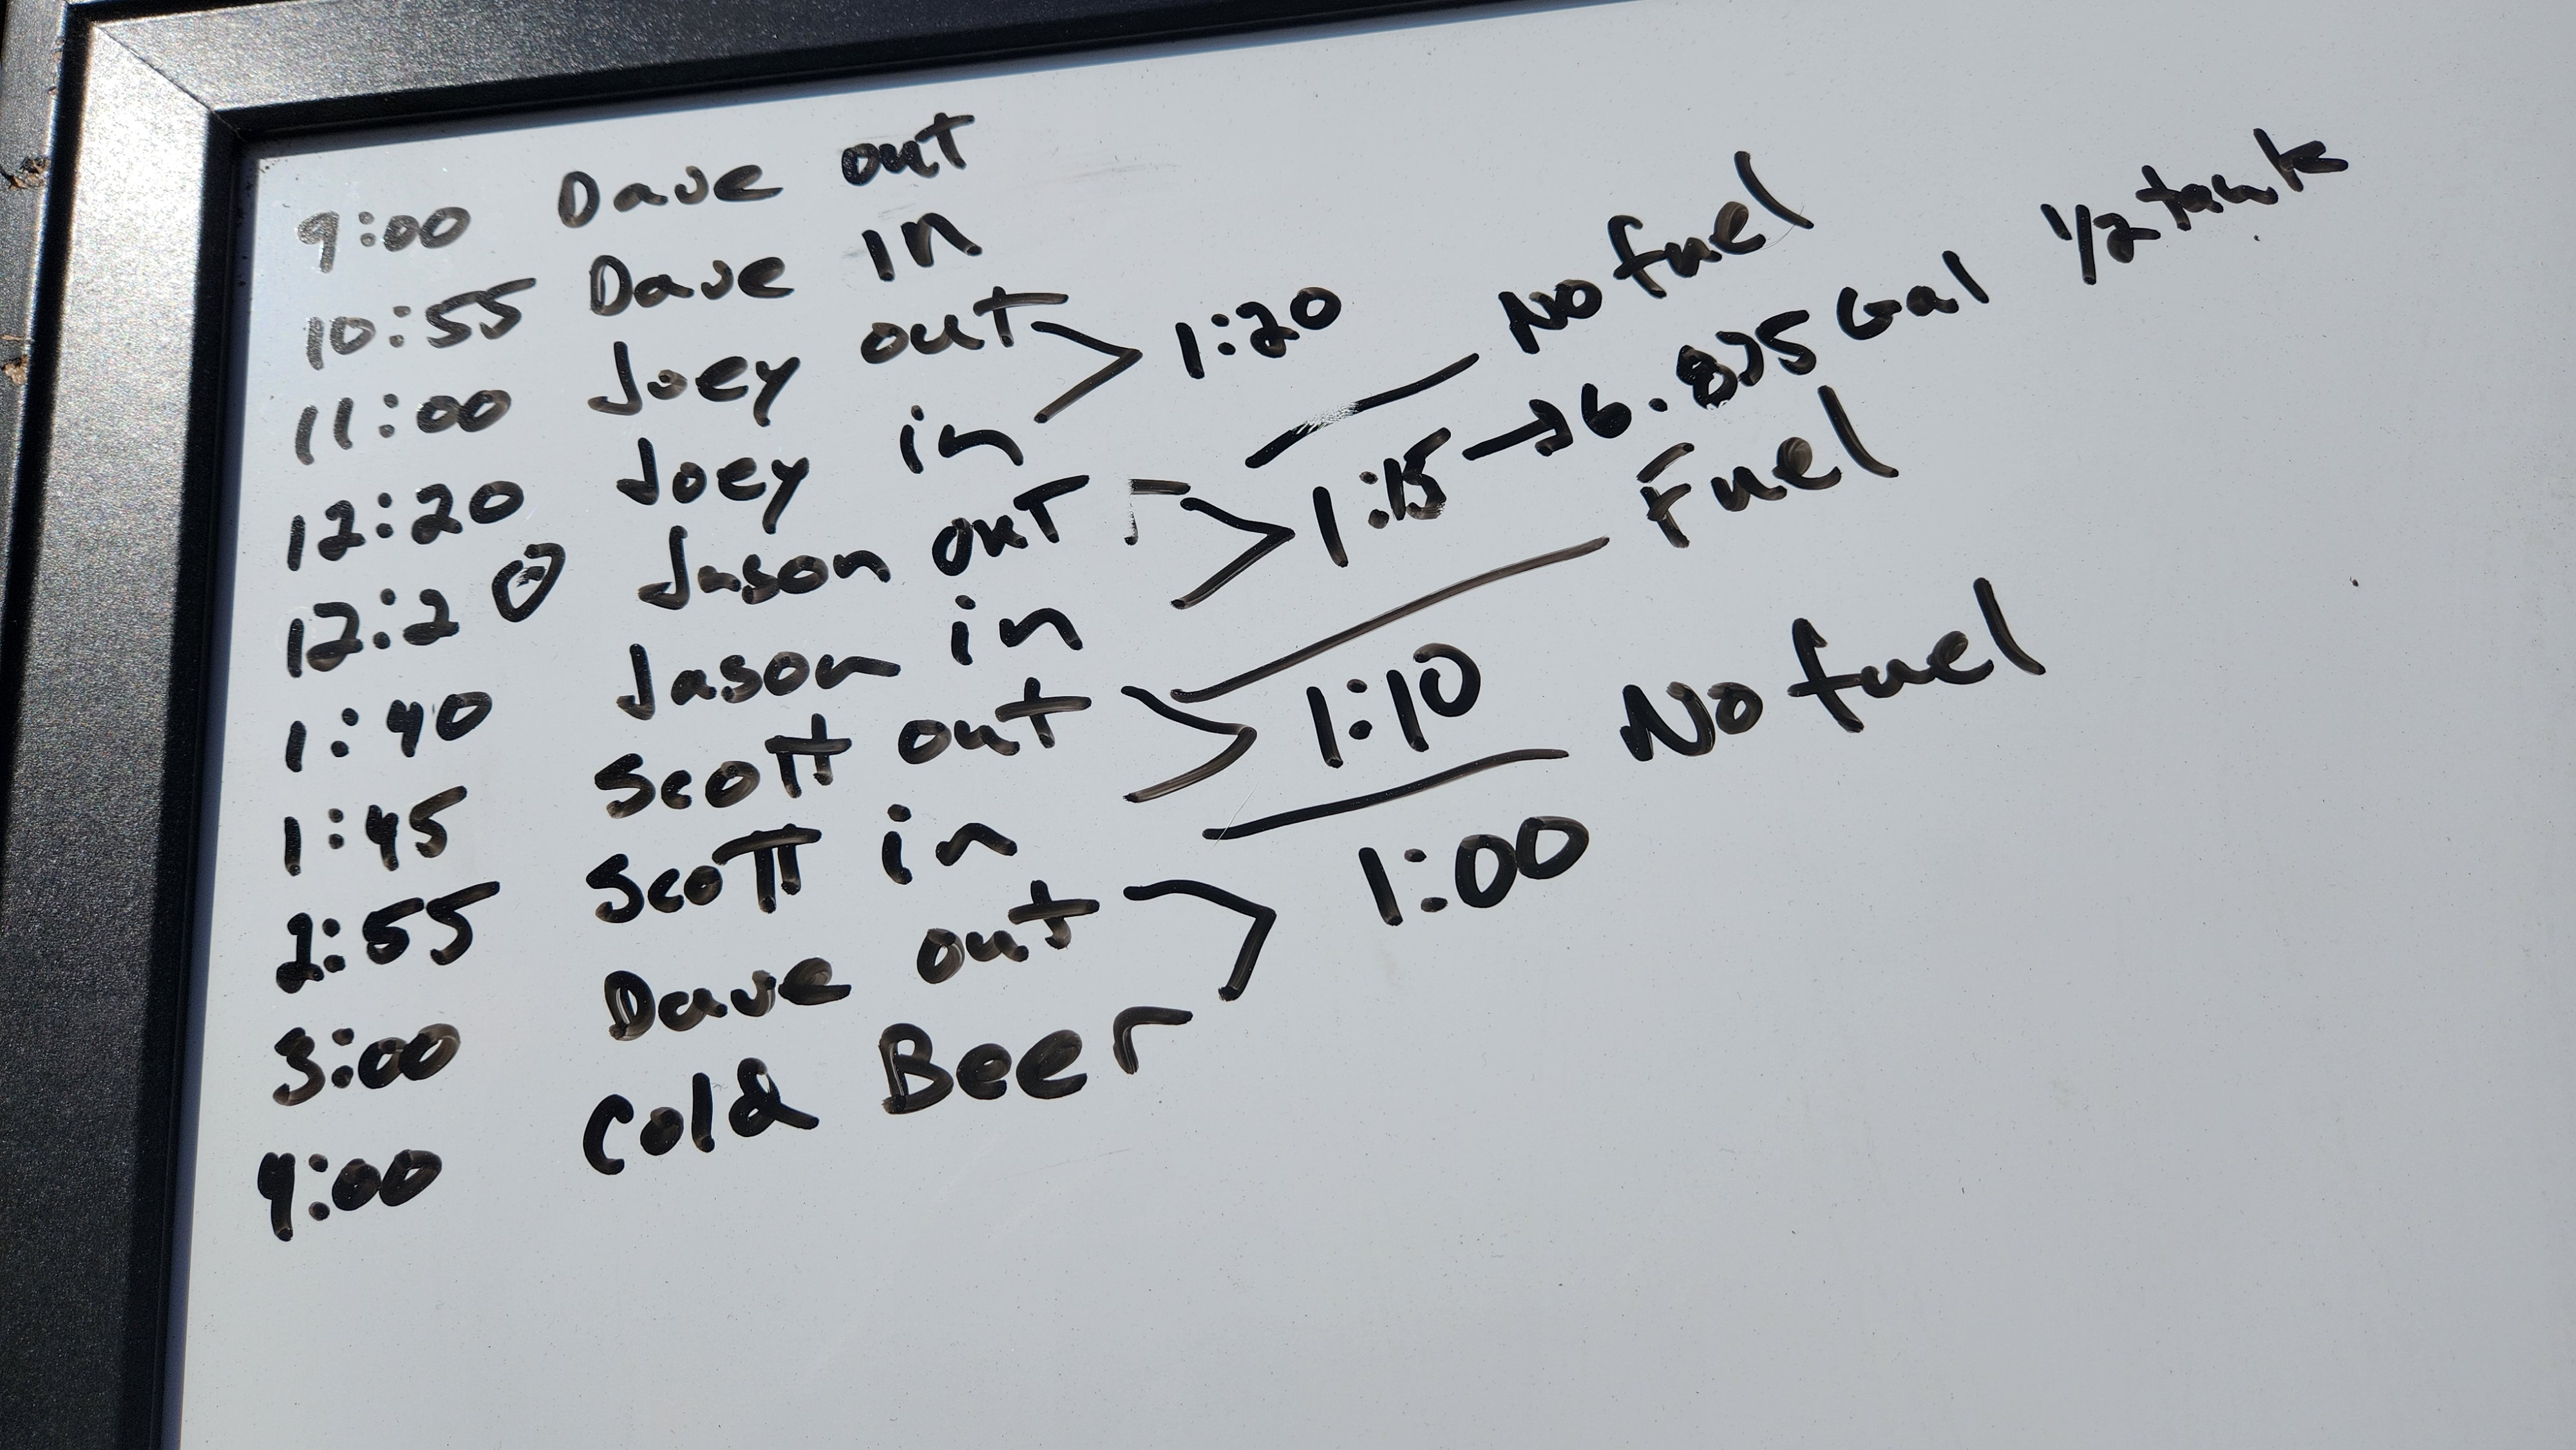 9:00 Dave out
10:55 Dave in
11:00 Joey out
12:20 Joey in
1:20
No fuel
12:20 Jason out
1:40 Jason in
1:15 → 6.875 Gal 1/2 tank
Fuel
1:45 Scott out
2:55 Scott in
1:10
No fuel
3:00 Dave out
4:00 Cold Beer
1:00